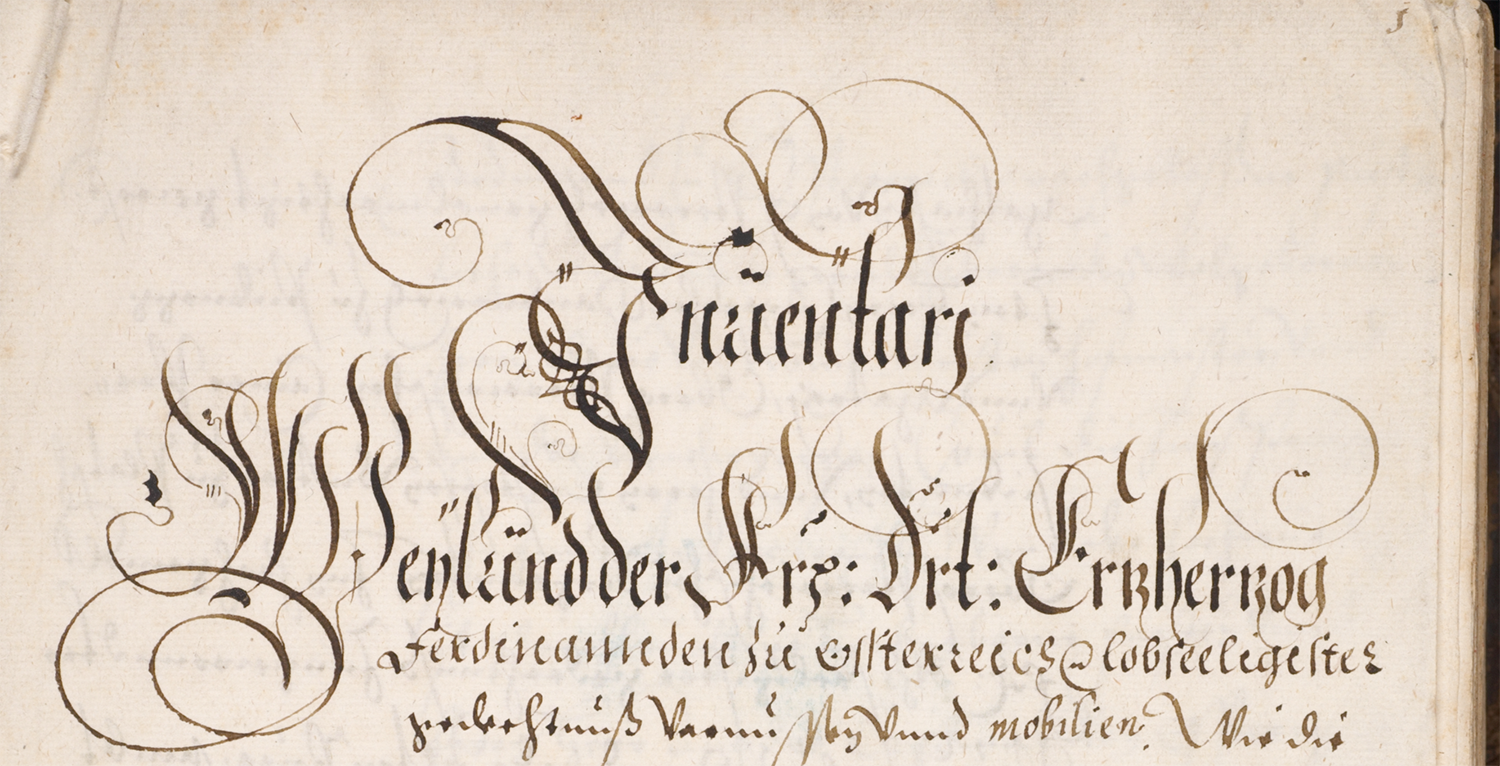 1
Inuentarj
Weylünd der Frz: Drt: Ertzhertzog
Ferdinannden zu Össterreich lobseeligister
gedechtnuß Varnussen vnnd mobilien, Wie die